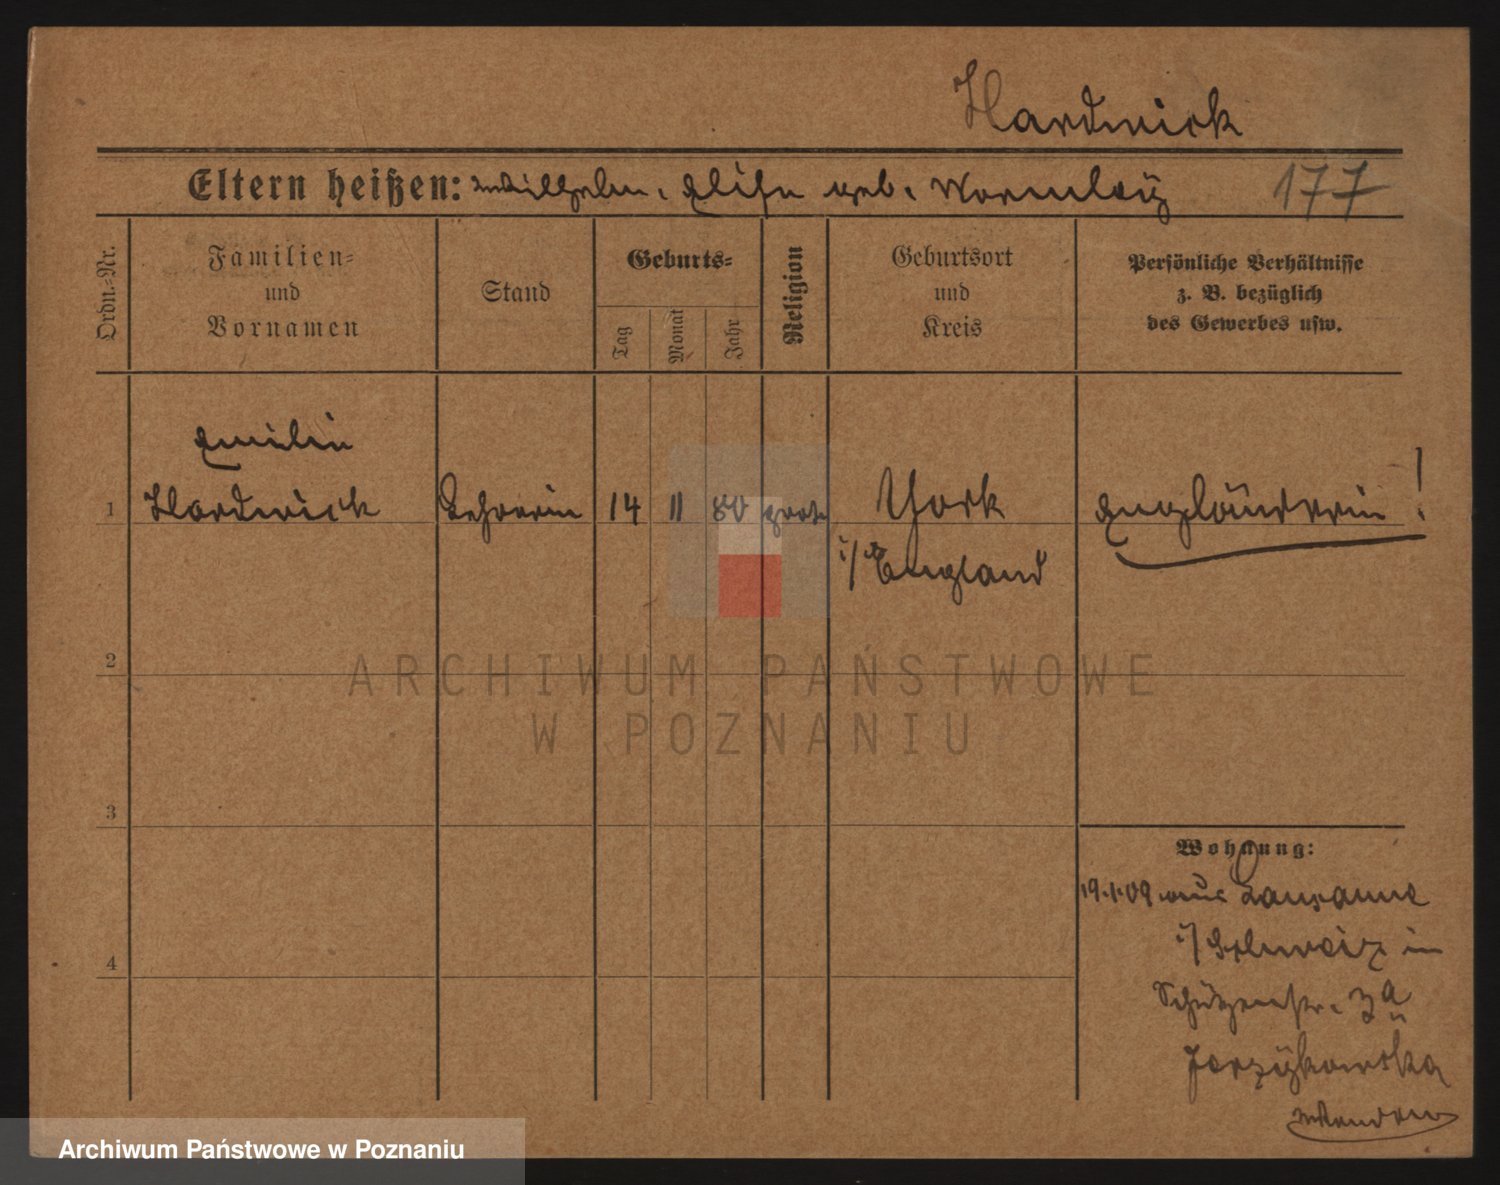 Hardwick
Eltern heißen: Wilhelm, Elise geb. Wormleÿ 177
Ordn.-Nr.
Familien-
und
Vornamen
Stand
Geburts-
Tag
Monat
Jahr
Religion
Geburtsort
und
Kreis
Persönliche Verhältnisse
z. B. bezüglich
des Gewerbes usw.
Emilie
1 Hardwick Lehrerin 14 11 80 prot. York Engländerin!
i/ England
2
ARCHIWUM PAŃSTWOWE
W POZNANIU
3
Wohnung:
19.1.09 aus Lausanne
i/ Schweiz in
Schützenstr. 3a
Jerzÿkowska
4
Archiwum Państwowe w Poznaniu